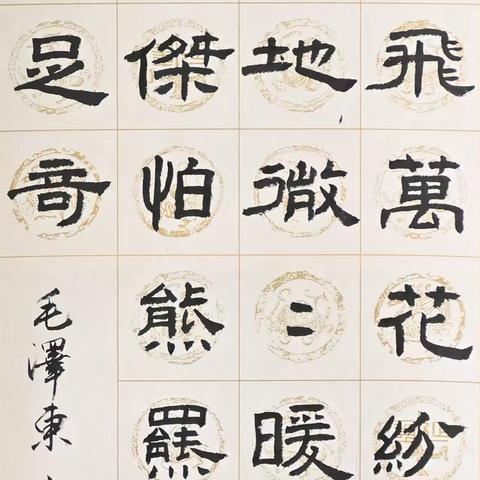 飛萬花紛
地微〻暖
傑怕熊羆
足奇
毛澤東